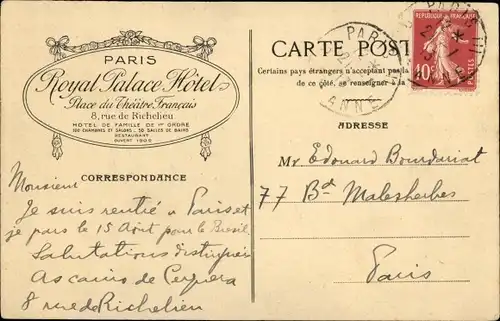 PARIS
Royal Palace Hôtel
Place du Théâtre Français
8, rue de Richelieu
HÔTEL DE FAMILLE DE 1er ORDRE
100 CHAMBRES ET SALONS _ 50 SALLES DE BAINS
RESTAURANT
OUVERT 1909
CARTE POST
Certains pays étrangers n'acceptent pas la
de ce côté, se renseigner à la
REPUBLIQUE FRANÇAISE
10c
PARIS
ADRESSE
Mr Edouard Bourdariat
77 Bd Malesherbes
Paris
CORRESPONDANCE
Monsieur
Je suis rentré à Paris et
je pars le 15 Août pour le Bresil
Salutations distinguées
8 rue de Richelieu